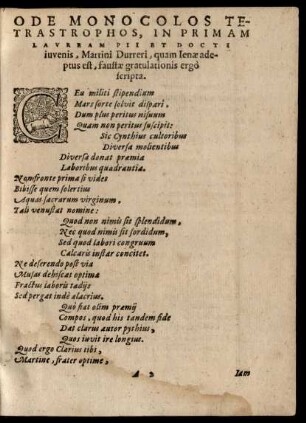 ODE MONOCOLOS TE-
TRASTROPHOS, IN PRIMAM
LAVREAM PII ET DOCTI
iuvenis, Martini Durreri, quam Ienæ ade-
ptus est, faustæ gratulationis ergò
scripta.
CEu militi stipendium
Mars sorte solvit dispari,
Dum plus peritus nisuum
Quam non peritus suscipit:
Sic Cynthius cultoribus
Diversa molientibus
Diversa donat præmia
Laboribus quadrantia.
Nam fronte prima si vides
Bibisse quem solertius
Aquas sacrarum virginum,
Tali venustat nomine:
Quod non nimis sit splendidum,
Nec quod nimis sit sordidum,
Sed quod labori congruum
Calcaris instar concitet.
Ne deserendo post via
Musas dehiscat optima
Fractus laboris tædijs
Sed pergat indè alacrius.
Qui fiat olim præmij
Compos, quod his tandem fide
Dat clarus autor pythius,
Quos iuvit ire longius.
Quod ergo Clarius tibi,
Martine, frater optime,
A 2 Iam